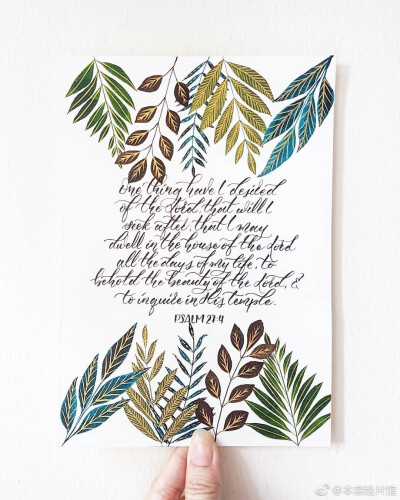 One thing have I desired
of the Lord, that will I
seek after; that I may
dwell in the house of the Lord
all the days of my life, to
behold the beauty of the Lord, &
to inquire in His temple.
PSALM 27:4